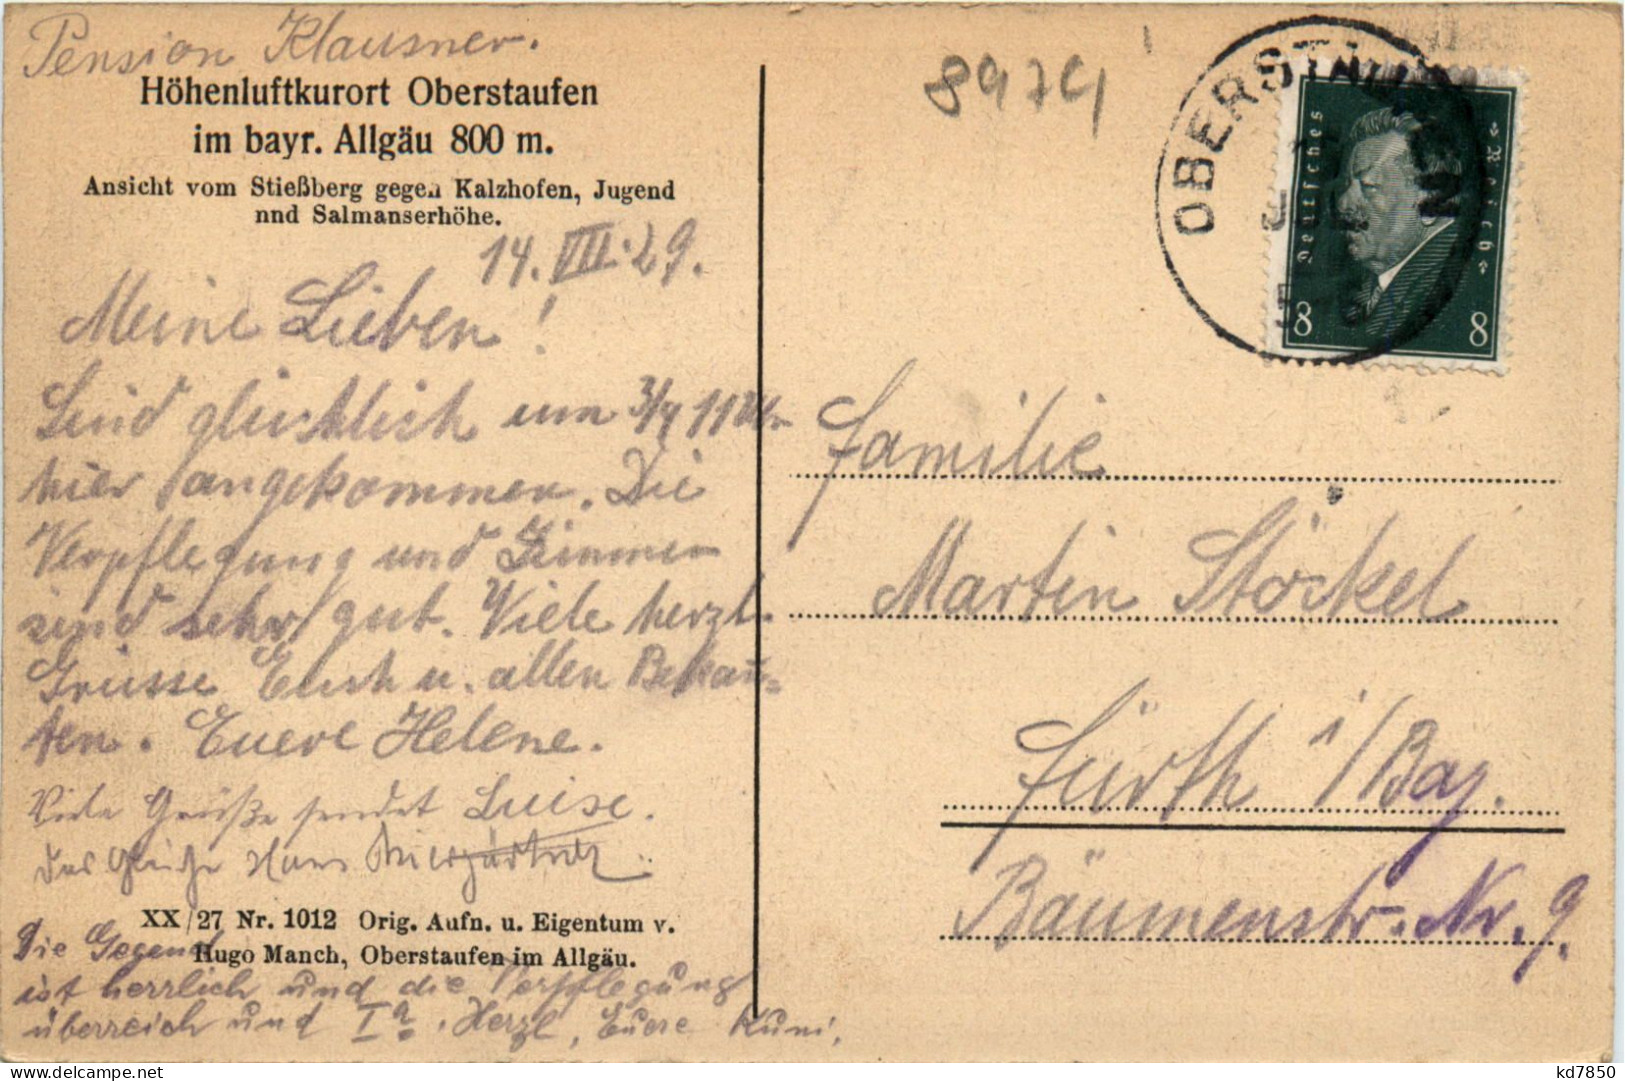 Pension Klausner.
Höhenluftkurort Oberstaufen
im bayr. Allgäu 800 m.
Ansicht vom Stießberg gegen Kalzhofen, Jugend
nnd Salmanserhöhe.
14. VII. 29.
Meine Lieben!
Sind glücklich um 3/4 11 Uhr
hier angekommen. Die
Verpflegung und Zimmer
sind sehr gut. Viele herzl.
Grüsse Euch u. allen Bekan-
ten. Euere Helene.
Viele Grüße sendet Luise.
Das Gleiche Hans
XX/27 Nr. 1012 Orig. Aufn. u. Eigentum v.
Hugo Manch, Oberstaufen im Allgäu.
Die Gegend
ist herrlich und die Verpflegung
überreich und Ia. Herzl. Euere Kuni.
8974
OBERSTAUFEN
Deutsches Reich
8 8
Familie
Martin Stöckel
Fürth i/Bay.
Bäumenstr. Nr. 9.
kd7850